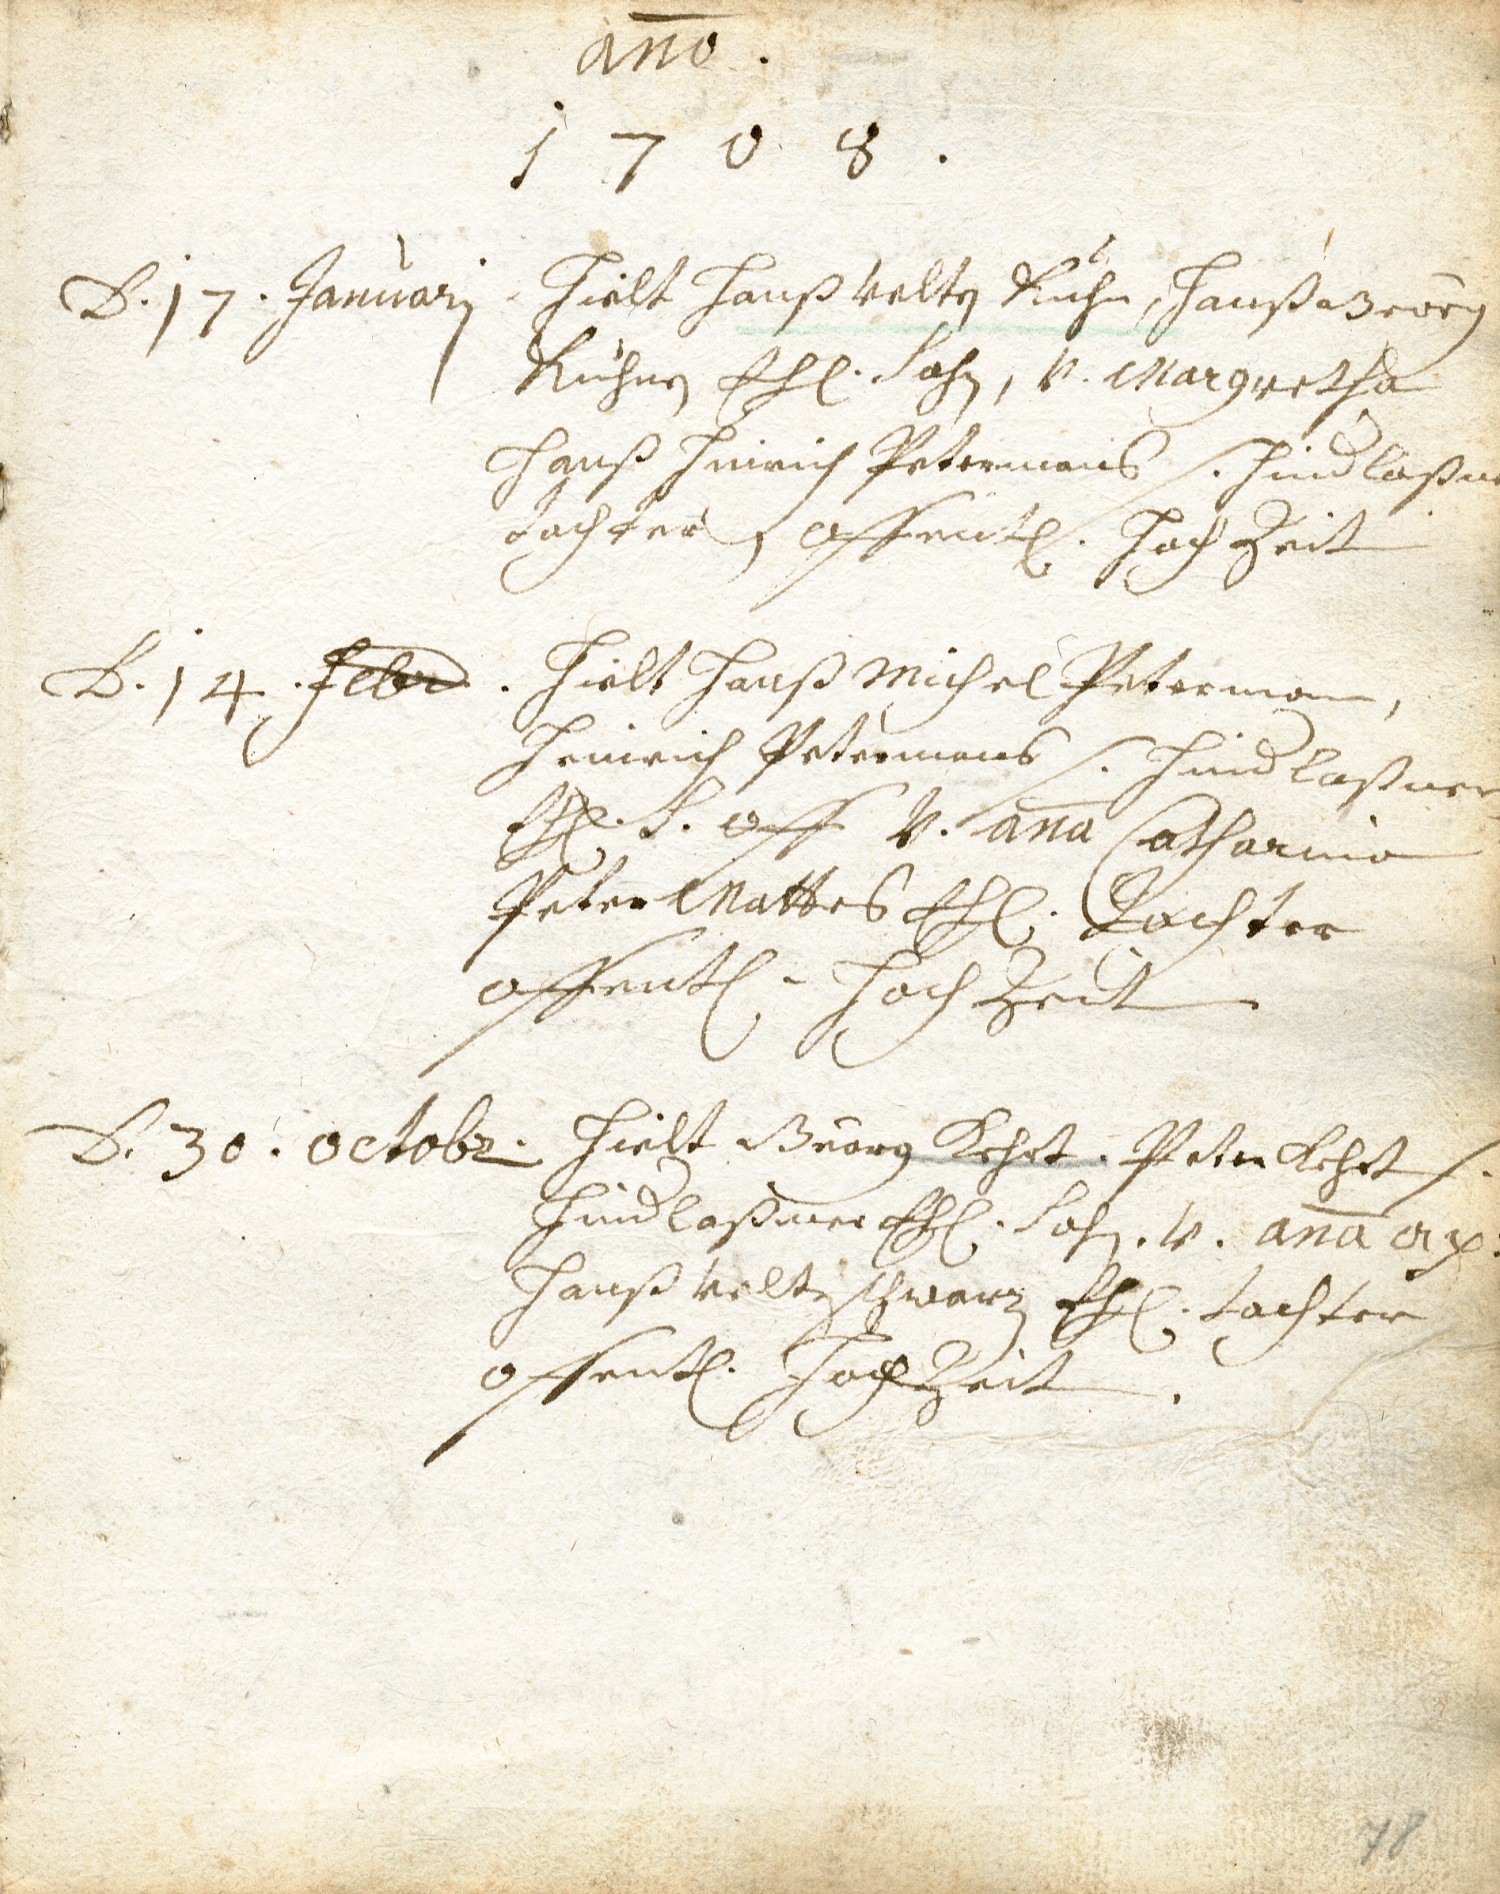 año.
1708.
D. 17. Januarij. Hielt Hanß Velty Kuhn, Hanß Georg
Kuhns Ehl. Sohn, V. Margretha
Hanß Heinrich Petermans s. hindlaßne
dochter, offentl. Hoch Zeit
D. 14. Febr. Hielt Hanß Michel Peterman,
Heinrich Petermans s. hindlaßner
Ehl. S. off V. aña Catharina
Peter Mattes Ehl. Dochter
offentl. Hoch Zeit
D. 30. octobr. Hielt Georg Lehrt. Peter Lehrt s.
hindlaßner Ehl. Sohn. V. aña
Hanß Velty Schwarz Ehl. dochter
offentl. Hoch Zeit.
78